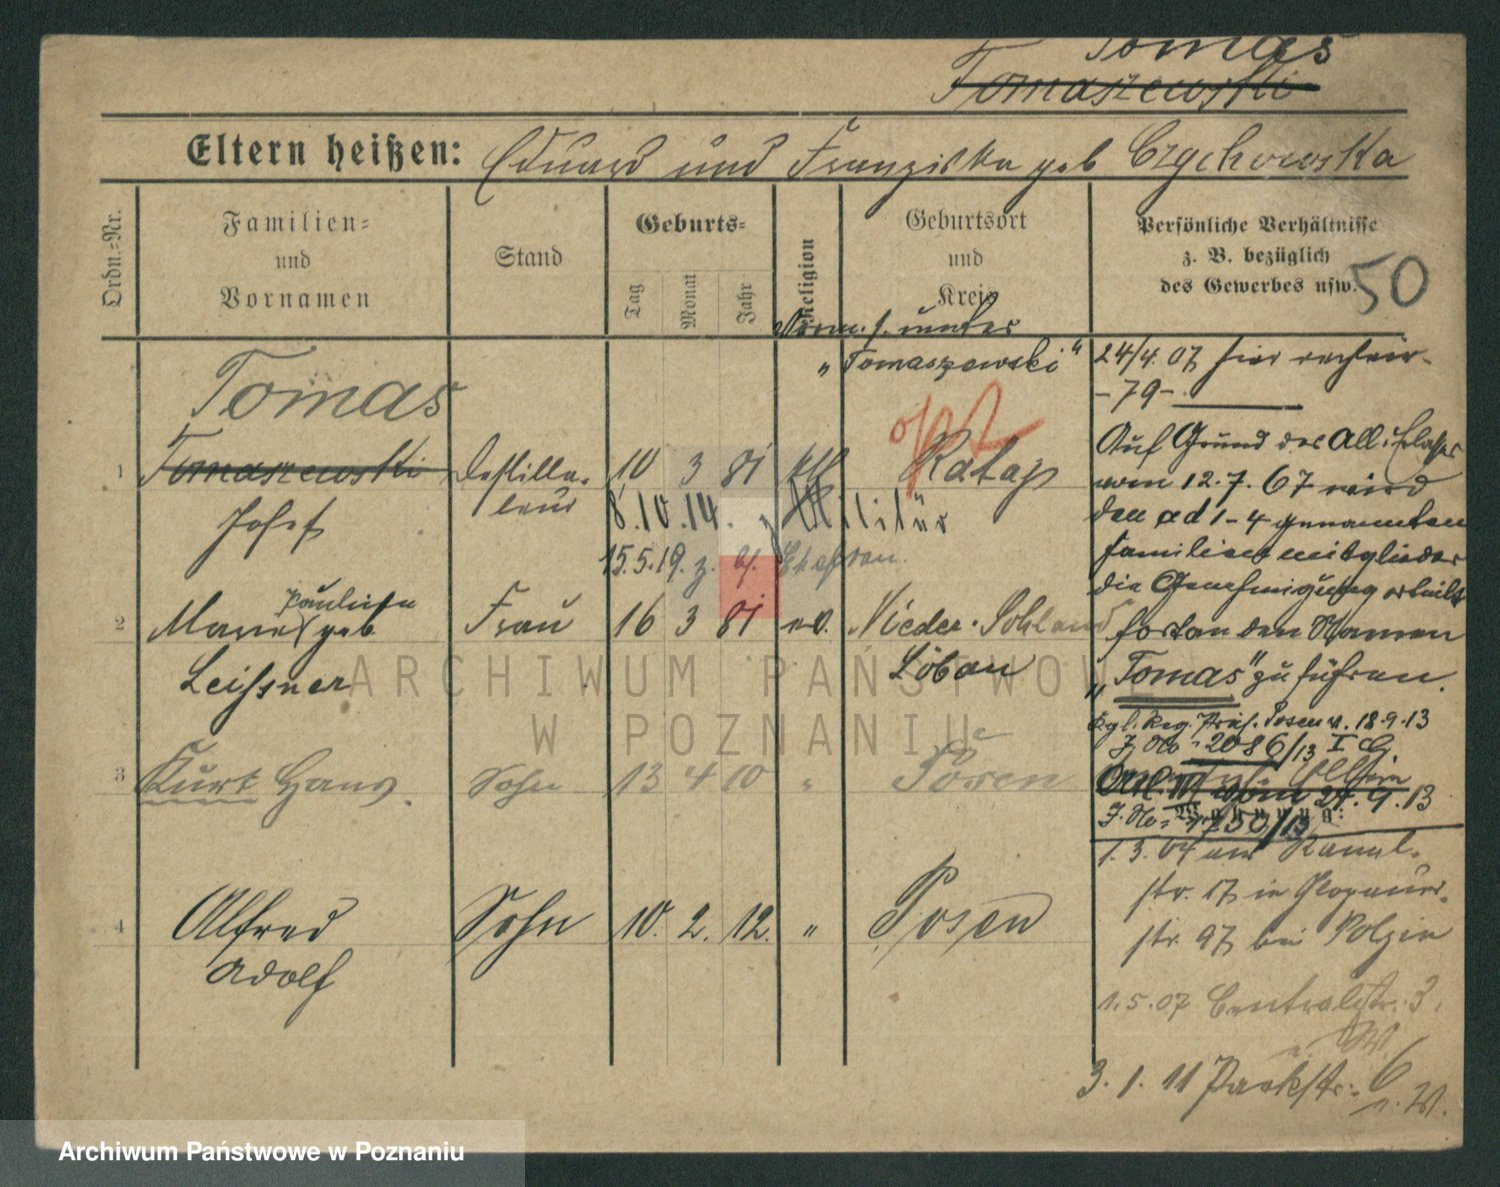 Tomas
Tomaszewski
Eltern heißen: Eduard und Franziska geb Czychowska
Ordn.=Nr.
Familien=
und
Vornamen
Stand
Geburts=
Tag
Monat
Jahr
Religion
Geburtsort
und
Kreis
Persönliche Verhältnisse
z. B. bezüglich
des Gewerbes usw.
50
Norm. s. unter
„Tomaszewski“
Tomas
1 Tomaszewski
Josef
Destilla-
teur
10 3 81 kth Rataj
opt
8.10.14. z. Militär
15.5.19. z. Ehefrau.
2 Marie Pauline geb
Leissner
Frau 16 3 81 ev. Nieder-Sohland
Löbau
3 Kurt Hans. Sohn 13 4 10 " Posen
4 Alfred
Adolf
Sohn 10. 2. 12. " Posen
24/4.07 hier
-79-
Auf Grund des All. Erlasses
vom 12.7.67 wird
den ad 1-4 genannten
Familienmitglieder
die Genehmigung erteilt
fortan den Namen
„Tomas“ zu führen.
Kgl. Reg. Präs. Posen v. 18.9.13
J. No 2086/13 I
vom 27.9.13
J. No 1730/13
Wohnung:
1.3.04 Kanal-
str. 17 in Glogauer-
str. 97 bei Polzin
1.5.07 Centralstr. 3.
n. W.
3.1.11 Parkstr. 6
n. W.
ARCHIWUM PAŃSTWOWE
W POZNANIU
Archiwum Państwowe w Poznaniu